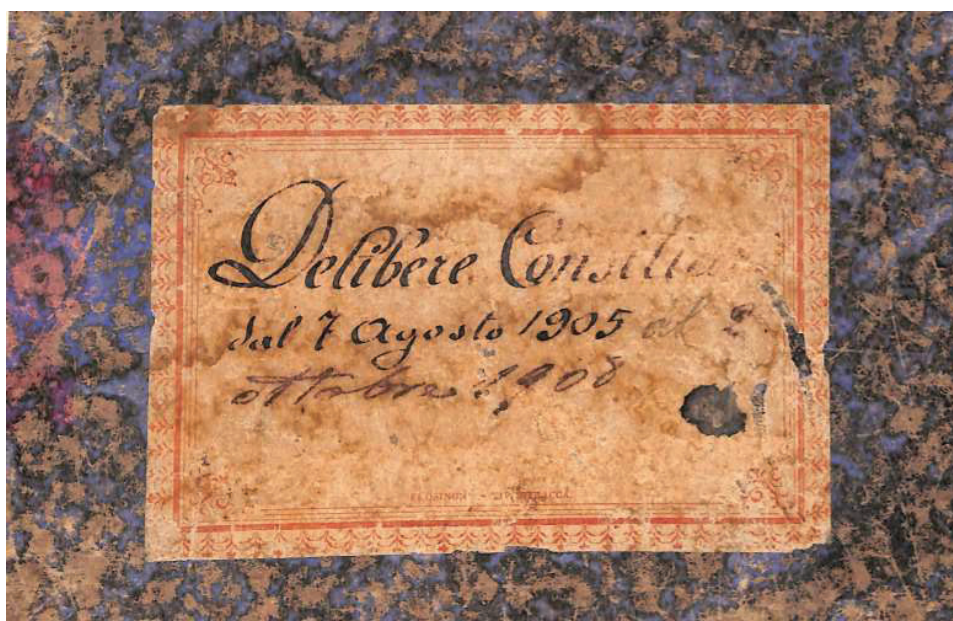 Delibere
dal 7 Agosto 1905 al 2
ottobre 1908